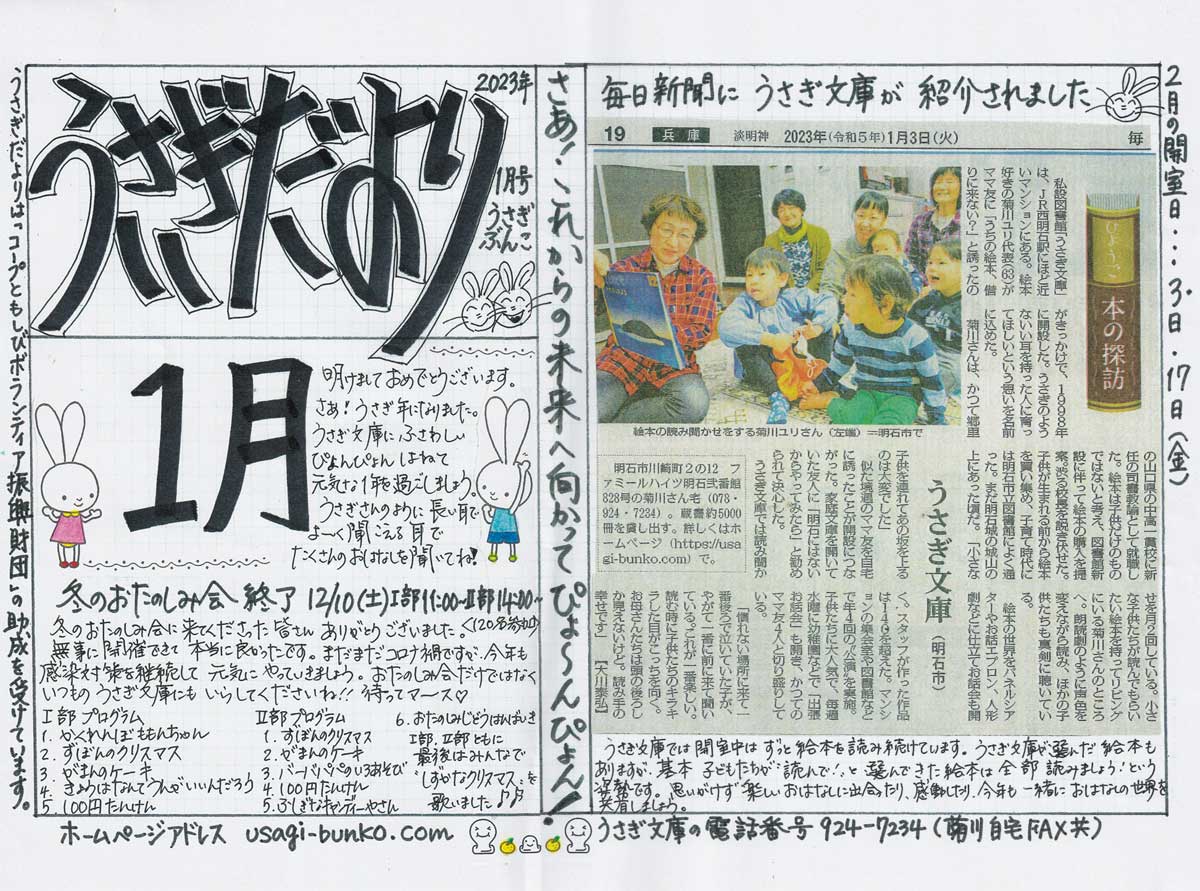 うさぎだより
2023年
1月号
うさぎ
ぶんこ
1月
明けましておめでとうございます。
さあ!うさぎ年になりました。
うさぎ文庫にふさわしい
ぴょんぴょん はねて
元気な1年を過ごしましょう。
うさぎさんのように長い耳で
よーく聞こえる耳で
たくさんのおはなしを聞いてね!
冬のおたのしみ会 終了 12/10(土)Ⅰ部11:00~Ⅱ部14:00~
(120名参加)
冬のおたのしみ会に来てくださった皆さん ありがとうございました。
無事に開催できて 本当に良かったです。まだまだコロナ禍ですが、今年も
感染対策を継続して 元気にやっていきましょう。おたのしみ会だけではなく
いつもの うさぎ文庫にも いらしてくださいね!! 待ってマース♡
Ⅰ部 プログラム
1. かくれんぼももんちゃん
2. ずぼんのクリスマス
3. がまんのケーキ
4. きょうはなんてうんがいいんだろう
5. 100円たんけん
Ⅱ部 プログラム
1. ずぼんのクリスマス
2. がまんのケーキ
3. バーバパパのいろあそび
4. 100円たんけん
5. ふしぎなキャンディーやさん
6. おたのしみじどうはんばいき
Ⅰ部、Ⅱ部ともに
最後はみんなで
「しずかなクリスマス」を
歌いました♪♪
ホームページアドレス usagi-bunko.com
うさぎだよりは「コープともしびボランティア振興財団」の助成を受けています。
さあ!これからの未来へ向かってぴょ〜んぴょん!
毎日新聞に うさぎ文庫が 紹介されました
2月の開室日・・・3日・17日(金)
19 兵庫 淡明神 2023年(令和5年)1月3日(火) 毎
ひょうご
本の探訪
私設図書館「うさぎ文庫」
は、JR西明石駅にほど近
いマンションにある。絵本
好きの菊川ユリ代表(63)が
ママ友に「うちの絵本、借
りに来ない?」と誘ったの
がきっかけで、1998年
に開設した。うさぎのよう
ないい耳を持った人に育っ
てほしいという思いを名前
に込めた。
菊川さんは、かつて郷里
の山口県の中高一貫校に新
任の司書教諭として就職し
た。絵本は子供だけのもの
ではないと考え、図書館新
設に伴って絵本の購入を提
案。渋る校長を説き伏せた。
子供が生まれる前から絵本
を買い集め、子育て時代に
は明石市立図書館によく通
った。まだ明石城の城山の
上にあった頃だ。「小さな
子供を連れてあの坂を上る
のは大変でした」
似た境遇のママ友を自宅
に誘ったことが開設につな
がった。家庭文庫を開いて
いた友人に「明石にはない
からやってみたら」と勧め
られて決心した。
うさぎ文庫では読み聞か
せを月2回している。小さ
な子供たちが読んでもらい
たい絵本を持ってリビング
にいる菊川さんのところ
へ。朗読劇のように声色を
変えながら読み、ほかの子
供たちも真剣に聴いてい
る。
絵本の世界をパネルシア
ターやお話エプロン、人形
劇などに仕立てお話会も開
く。スタッフが作った作品
は140を超えた。マンシ
ョンの集会室や図書館など
で年4回の〝公演〟を実施。
子供たちに大人気で、毎週
水曜に幼稚園などで「出張
お話会」も開き、かつての
ママ友4人と切り盛りして
いる。
「慣れない場所に来て一
番後ろで泣いていた子が、
やがて一番に前に来て聞い
ている。これが一番楽しい。
読む時に子供たちのキラキ
ラした目がこっちを向く。
お母さんたちは頭の後ろし
か見えないけど。読み手の
幸せです」 【大川泰弘】
絵本の読み聞かせをする菊川ユリさん(左端)=明石市で
うさぎ文庫(明石市)
明石市川崎町2の12 フ
ァミールハイツ明石弐番館
828号の菊川さん宅(078・
924・7234)。蔵書約5000
冊を貸し出す。詳しくはホ
ームページ(https://usa
gi-bunko.com)で。
うさぎ文庫では開室中は ずっと絵本を読み続けています。うさぎ文庫が選んだ絵本も
ありますが、基本 子どもたちが“読んで!”と選んできた絵本は 全部 読みましょう!という
姿勢です。思いがけず 楽しい おはなしに出会ったり、感動したり、今年も 一緒に おはなしの世界を
共有しましょう。
うさぎ文庫の電話番号 924-7234(菊川自宅FAX共)